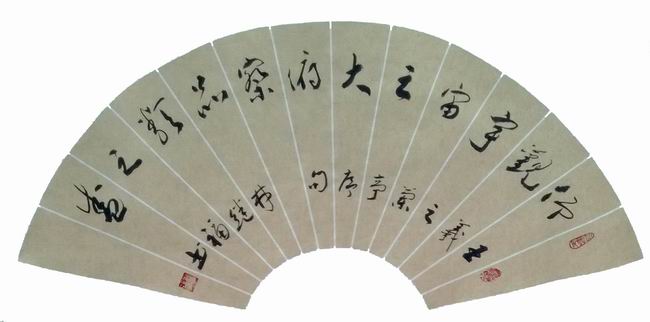 仰觀宇宙之大俯察品類之盛
王羲之蘭亭序句
福书